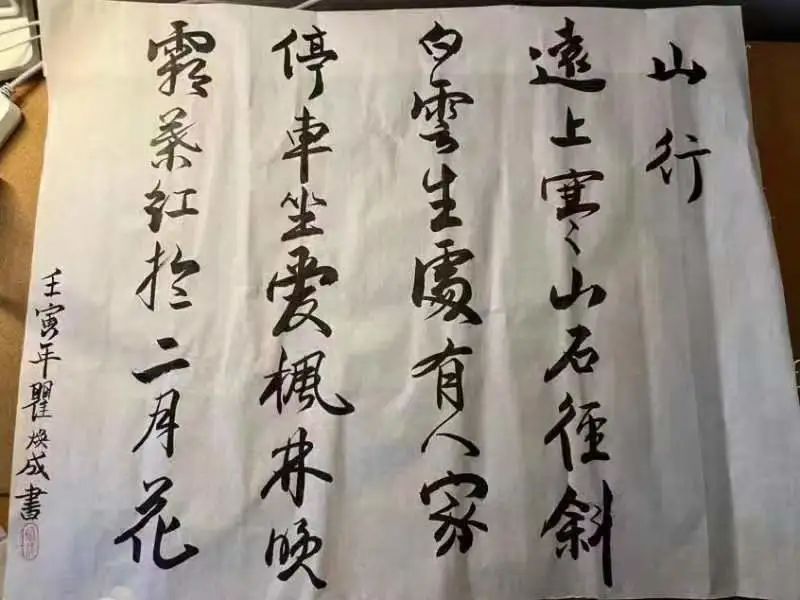 山行
遠上寒山石徑斜
白雲生處有人家
停車坐愛楓林晚
霜葉紅於二月花
壬寅年瞿焕成書